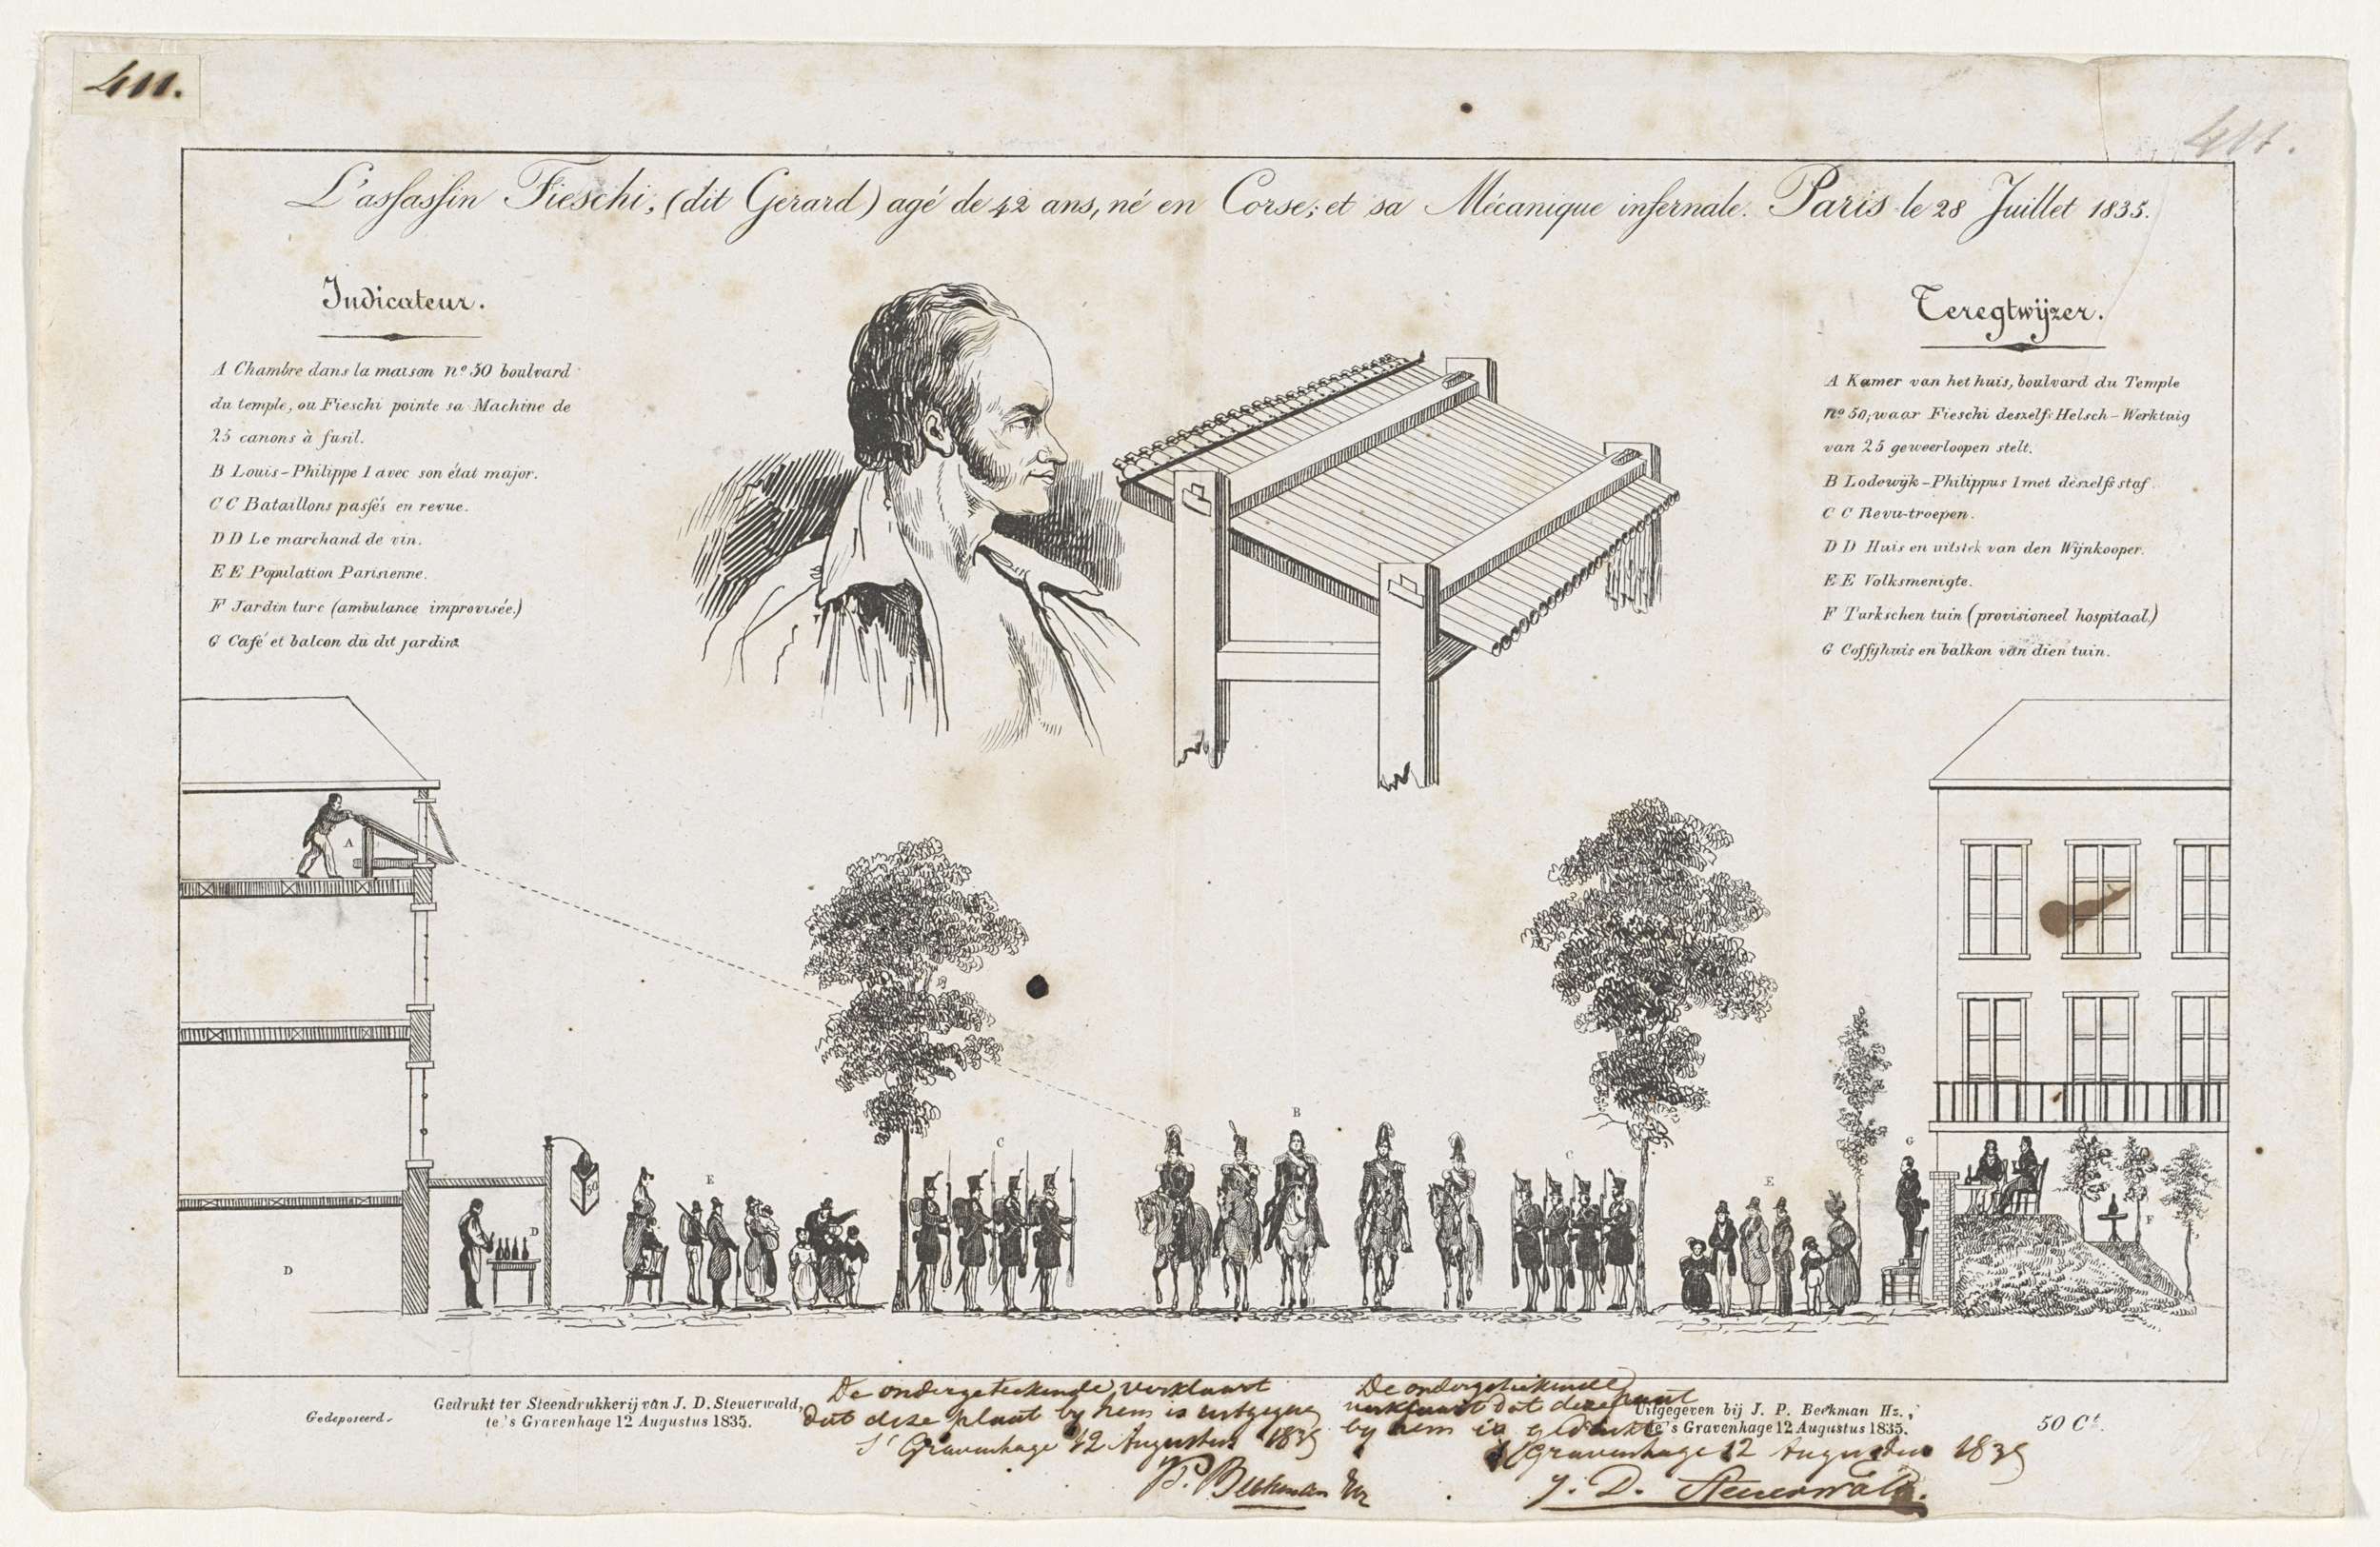 411.
411.
L'assassin Fieschi, (dit Gerard) agé de 42 ans, né en Corse; et sa Mécanique infernale. Paris le 28 Juillet 1835.
Indicateur.
A Chambre dans la maison nº 50 boulvard
du temple, ou Fieschi pointe sa Machine de
25 canons à fusil.
B Louis-Philippe I avec son état major.
C C Bataillons passés en revue.
D D Le marchand de vin.
E E Population Parisienne.
F Jardin turc (ambulance improvisée.)
G Café et balcon du dit jardin.
Teregtwijzer.
A Kamer van het huis, boulvard du Temple
nº 50, waar Fieschi deszelfs Helsch-Werktuig
van 25 geweerloopen stelt.
B Lodewijk-Philippus I met deszelfs staf.
C C Revu-troepen.
D D Huis en uitstek van den Wijnkooper.
E E Volksmenigte.
F Turkschen tuin (provisioneel hospitaal.)
G Coffijhuis en balkon van dien tuin.
A
B
C
C
G
E
E
50
D
F
D
Gedeposeerd.
Gedrukt ter Steendrukkerij van J. D. Steuerwald,
te 's Gravenhage 12 Augustus 1835.
De ondergeteekende verklaart
dat deze plaat by hem is uitgegeven
s' Gravenhage 12 Augustus 1835
P. Beekman Hz
De ondergeteekende
verklaart dat deze plaat
by hem is gedrukt
s' Gravenhage 12 Augustus 1835
J. D. Steuerwald.
Uitgegeven bij J. P. Beekman Hz.,
te 's Gravenhage 12 Augustus 1835.
50 Ct.